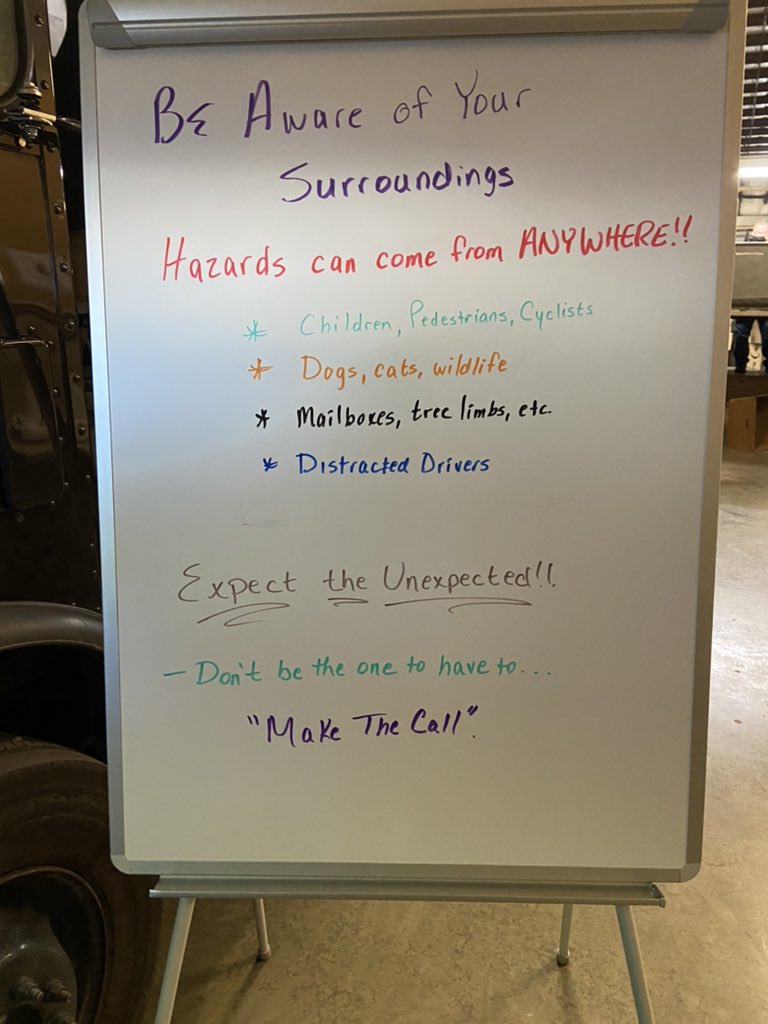 Be Aware of Your
Surroundings
Hazards can come from ANYWHERE!!
* Children, Pedestrians, Cyclists
* Dogs, cats, wildlife
* Mailboxes, tree limbs, etc.
* Distracted Drivers
Expect the Unexpected!!
- Don't be the one to have to...
"Make The Call".